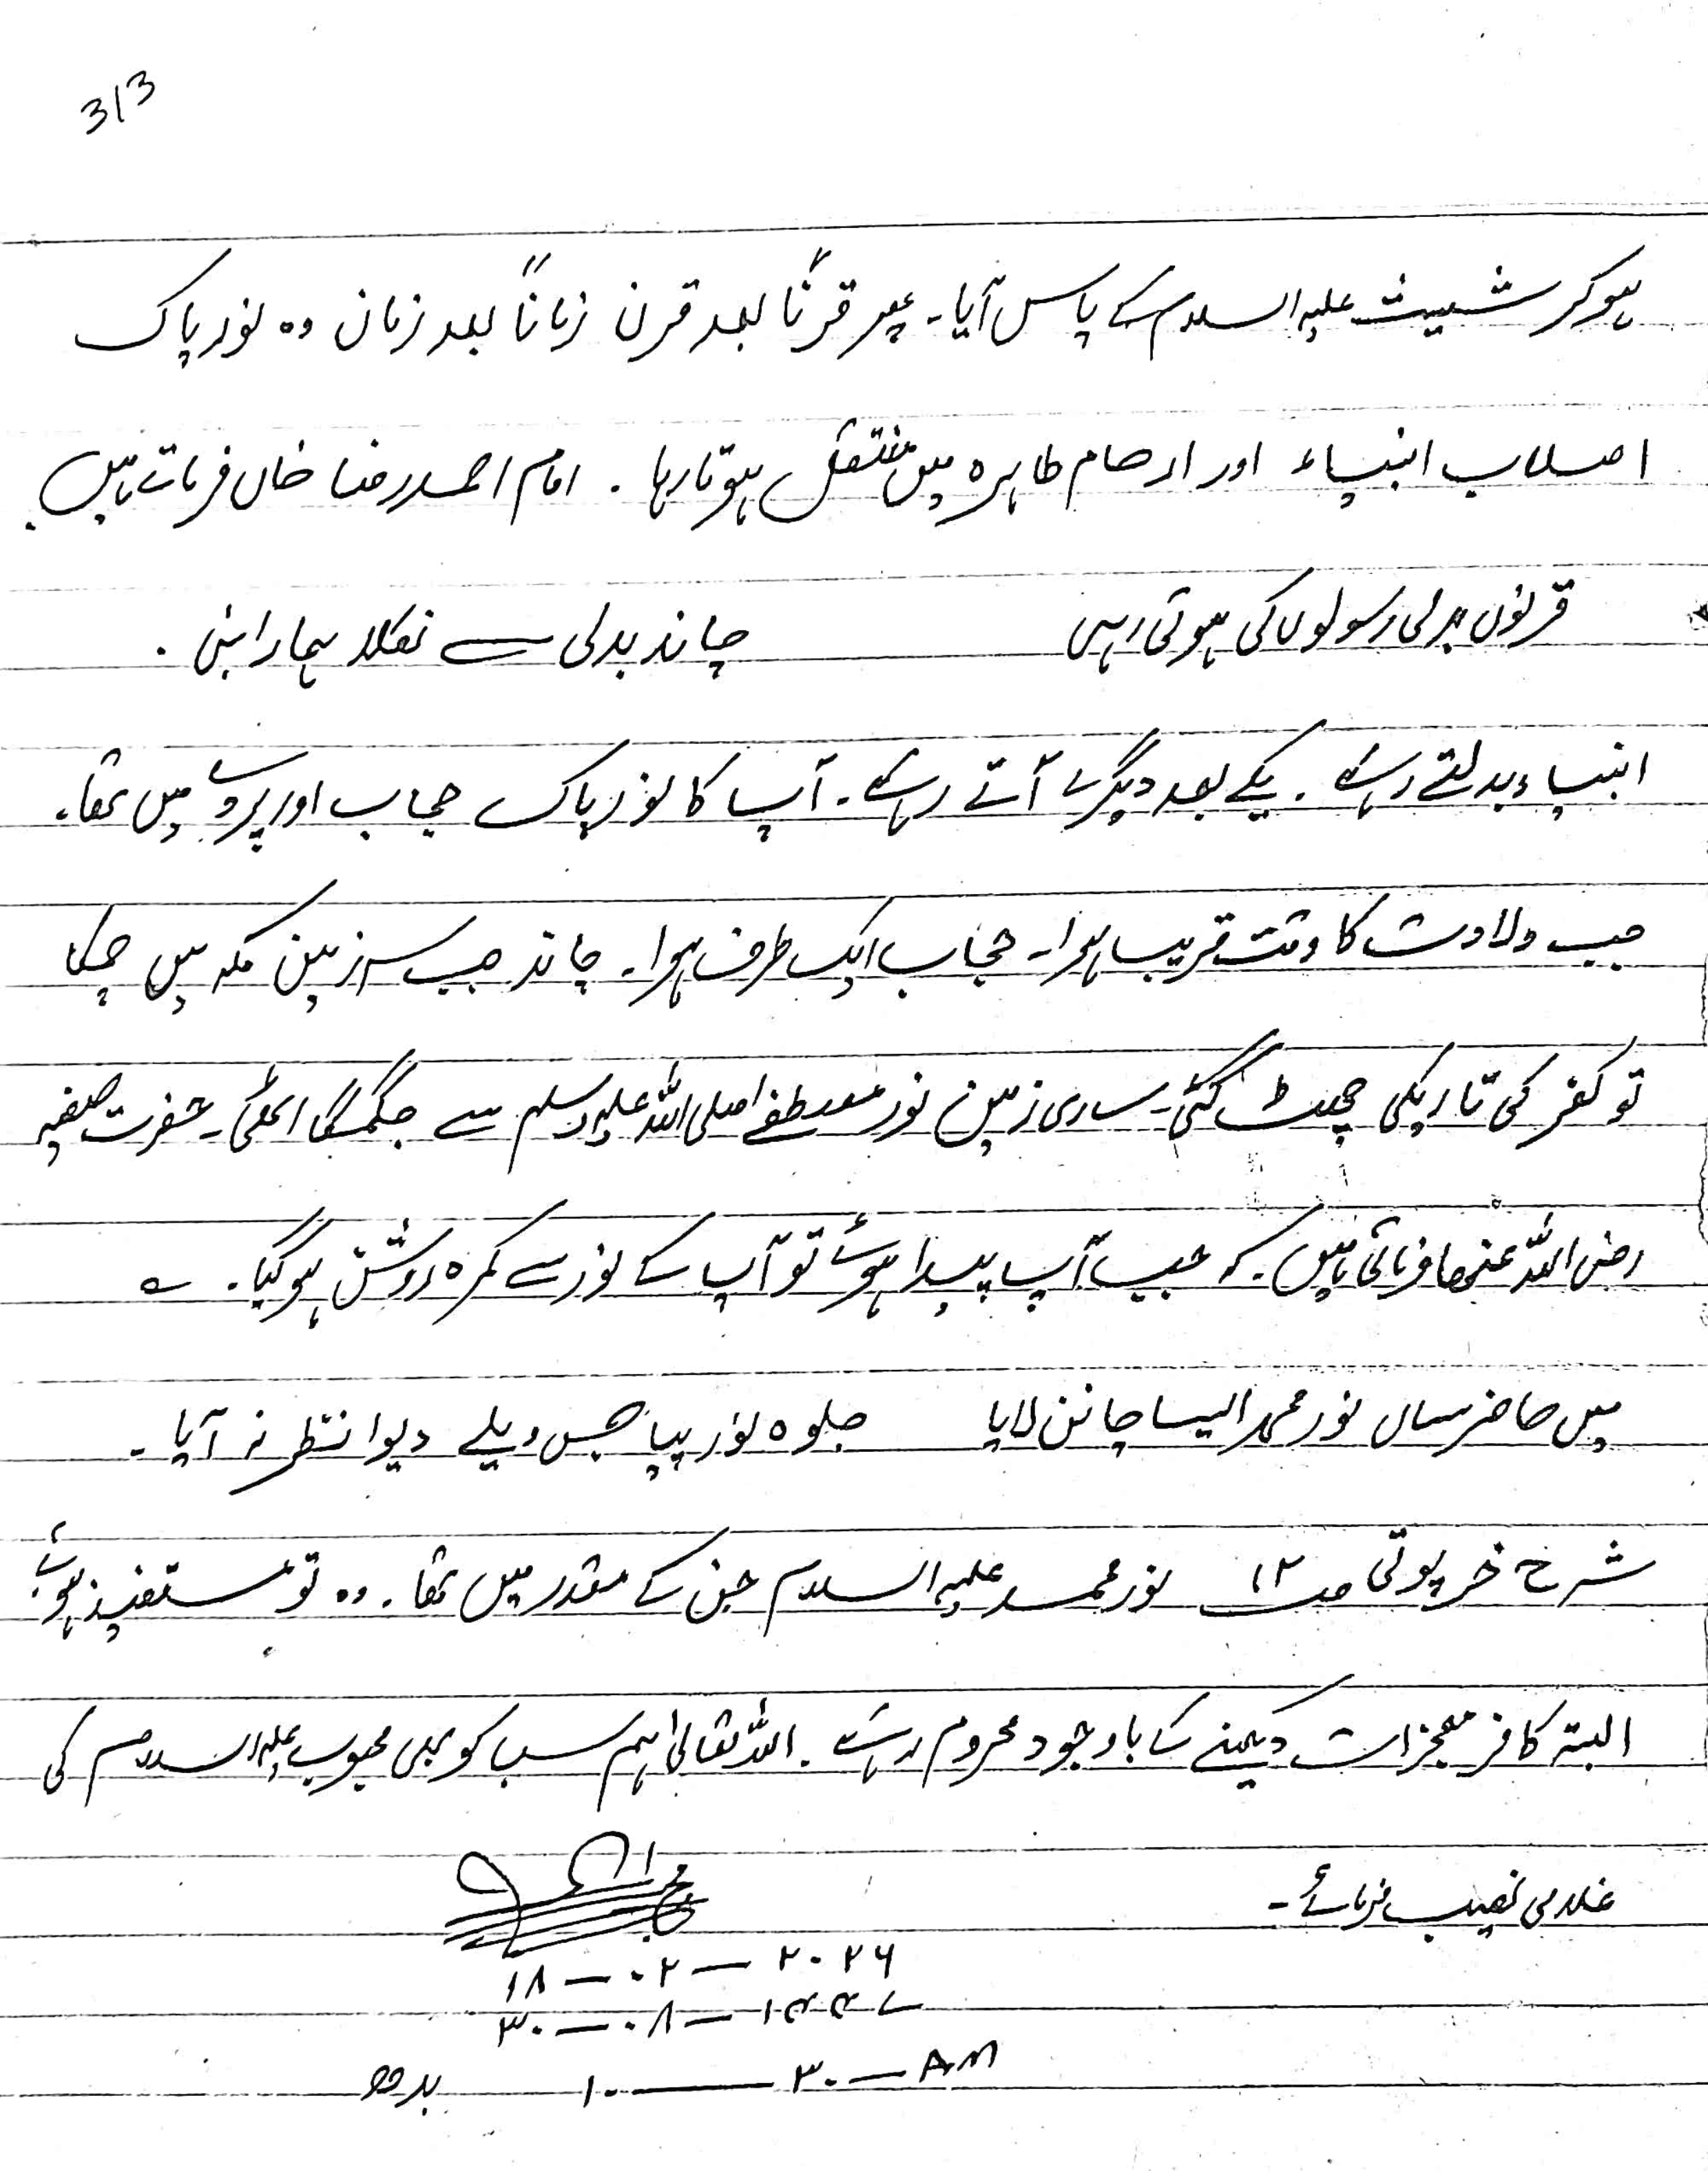 3/3
ہوکر شیث علیہ السلام کے پاس آیا۔ پھر قرناً بعد قرن زماناً بعد زمان وہ نور پاک
اصلاب انبیاء اور ارحام طاہرہ میں منتقل ہوتا رہا۔ امام احمد رضا خاں فرماتے ہیں۔
قرنوں بدلی رسولوں کی ہوتی رہی چاند بدلی سے نکلا ہمارا نبی۔
انبیاء بدلتے رہے۔ یکے بعد دیگرے آتے رہے۔ آپ کا نور پاک حجاب اور پردے میں تھا۔
جب ولادت کا وقت قریب ہوا۔ حجاب ایک طرف ہوا۔ چاند جب سرزمین مکہ میں چمکا
تو کفر کی تاریکی چھٹ گئی۔ ساری زمین نور مصطفے صلی اللہ علیہ وسلم سے جگمگا اٹھی۔ حضرت صفیہ
رضی اللہ عنھا فرماتی ہیں۔ کہ جب آپ پیدا ہوئے تو آپ کے نور سے کمرہ روشن ہوگیا۔ ؎
میں حاضر ساں نور محمد ایسا چانن لایا جلوہ نور پیا جس ویلے دیوا نظر نہ آیا۔
شرح خرپوتی صـ ۱۲ نور محمد علیہ السلام جن کے مقدر میں تھا۔ وہ تو مستفیذ ہوئے
البتہ کافر معجزات دیکھنے کے باوجود محروم رہے۔ اللہ تعالیٰ ہم سب کو بھی محبوب علیہ السلام کی
غلامی نصیب فرمائے۔
۱۸ — ۰۲ — ۲۰۲۶
۳۰ — ۰۸ — ۱۴۴۷
۱۰ — ۳۰ — AM بدھ